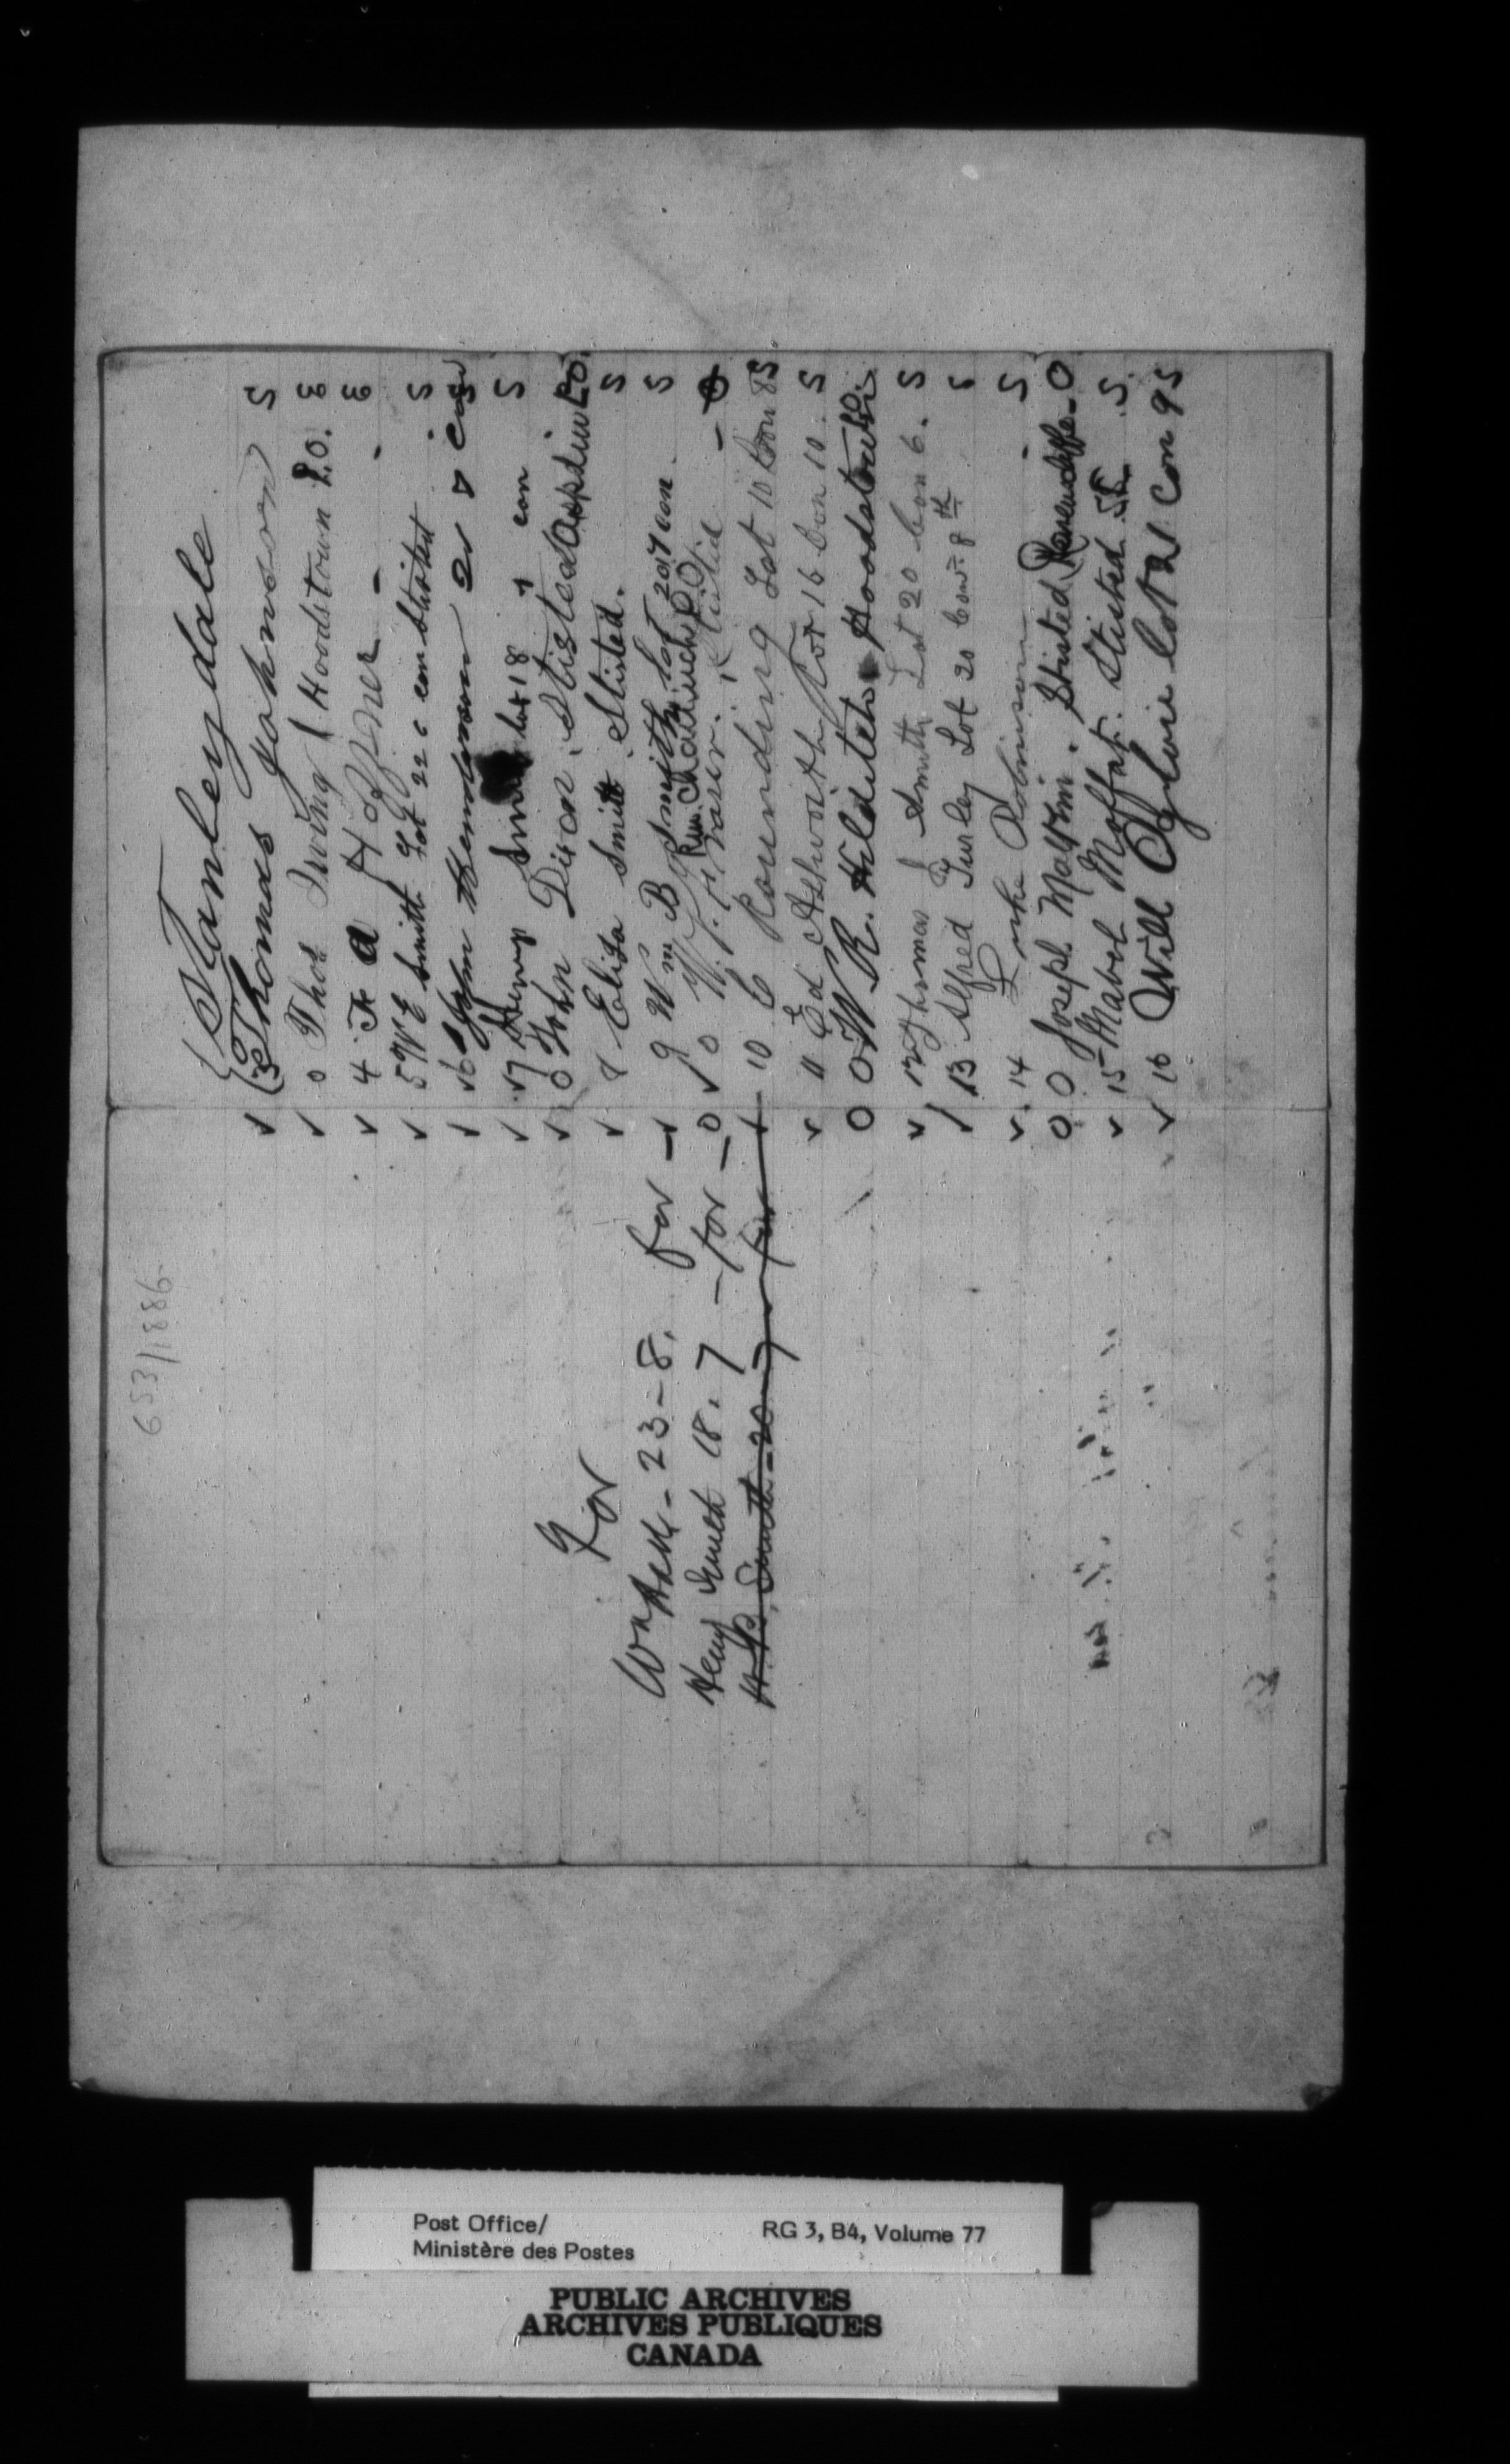 653/1886
Stanleydale
✓ 3 Thomas Johnson S
✓ 0 Thos Irving Hoodstown P.O. 3
✓ 4 F a H - - 3
✓ 5 W E Smith Lot 22 6 con Stisted S
✓ 6 Henderson 21 8 con S
✓ 7 Henry Smith lot 18 7 con S
✓ 0 John Dixon, Stisted Aspdin P.O.
✓ 8 Eliza Smith Stisted. S
For
23-8. for - ✓ 9 Wm B Smith Lot 20 7 con S
Henry Smith 18.7 - for - 0 ✓ 0 W. Stisted - 0
H.B. Smith - 20 - 7 - for ✓ 10 C Rounding Lot 10 Con 8 S
✓ 11 Ed Ashworth Lot 16 Con 10. S
0 0 W R. Hilditch Hoodstown P.O.
✓ 12 Thomas J Smith Lot 20 Con 6. S
✓ 13 Alfred Lot 20 Con. 8th S
✓ 14 Luke Robinson - S
0 0 Joseph. Stisted Ravenscliffe - 0
✓ 15 Mabel Moffat. Stisted S.
✓ 16 Will Ogilvie lot 21 Con 9 S
Post Office/
Ministère des Postes
RG 3, B4, Volume 77
PUBLIC ARCHIVES
ARCHIVES PUBLIQUES
CANADA